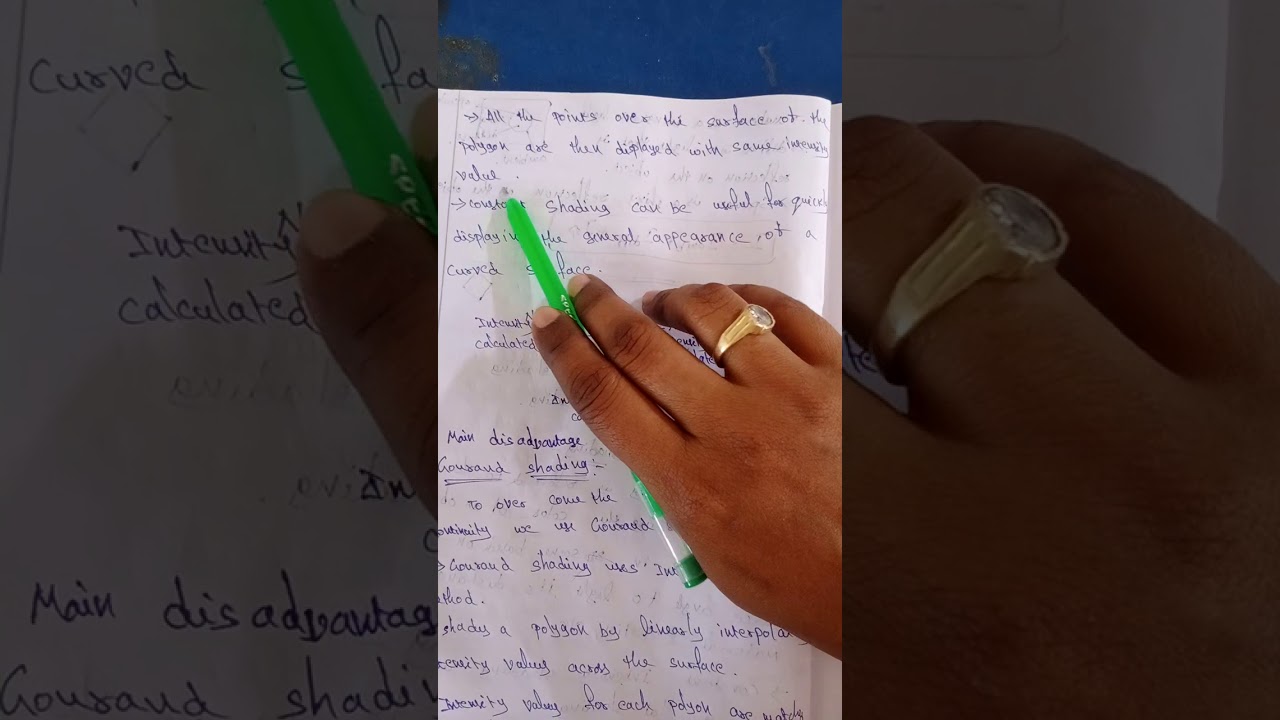 → All the points over the surface of the
polygon are then displayed with same intensity
value.
→ constant shading can be useful for quickly
displaying the general appearance of a
curved surface.
Intensity
calculated
Main disadvantage
Gouraud shading:-
To over come the
we use Gouraud
→ Gouraud shading uses Int
thod.
shades a polygon by linearly interpolating
tensity values across the surface.
Intensity values for each polyon are